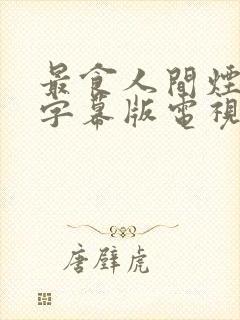 最食人間煙
字幕版電視
唐壁虎